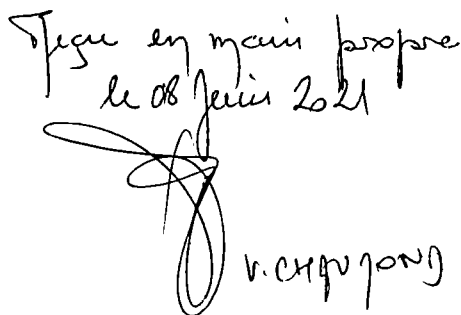 Reçu en main propre
le 08 Juin 2021
V. CHAUMOND